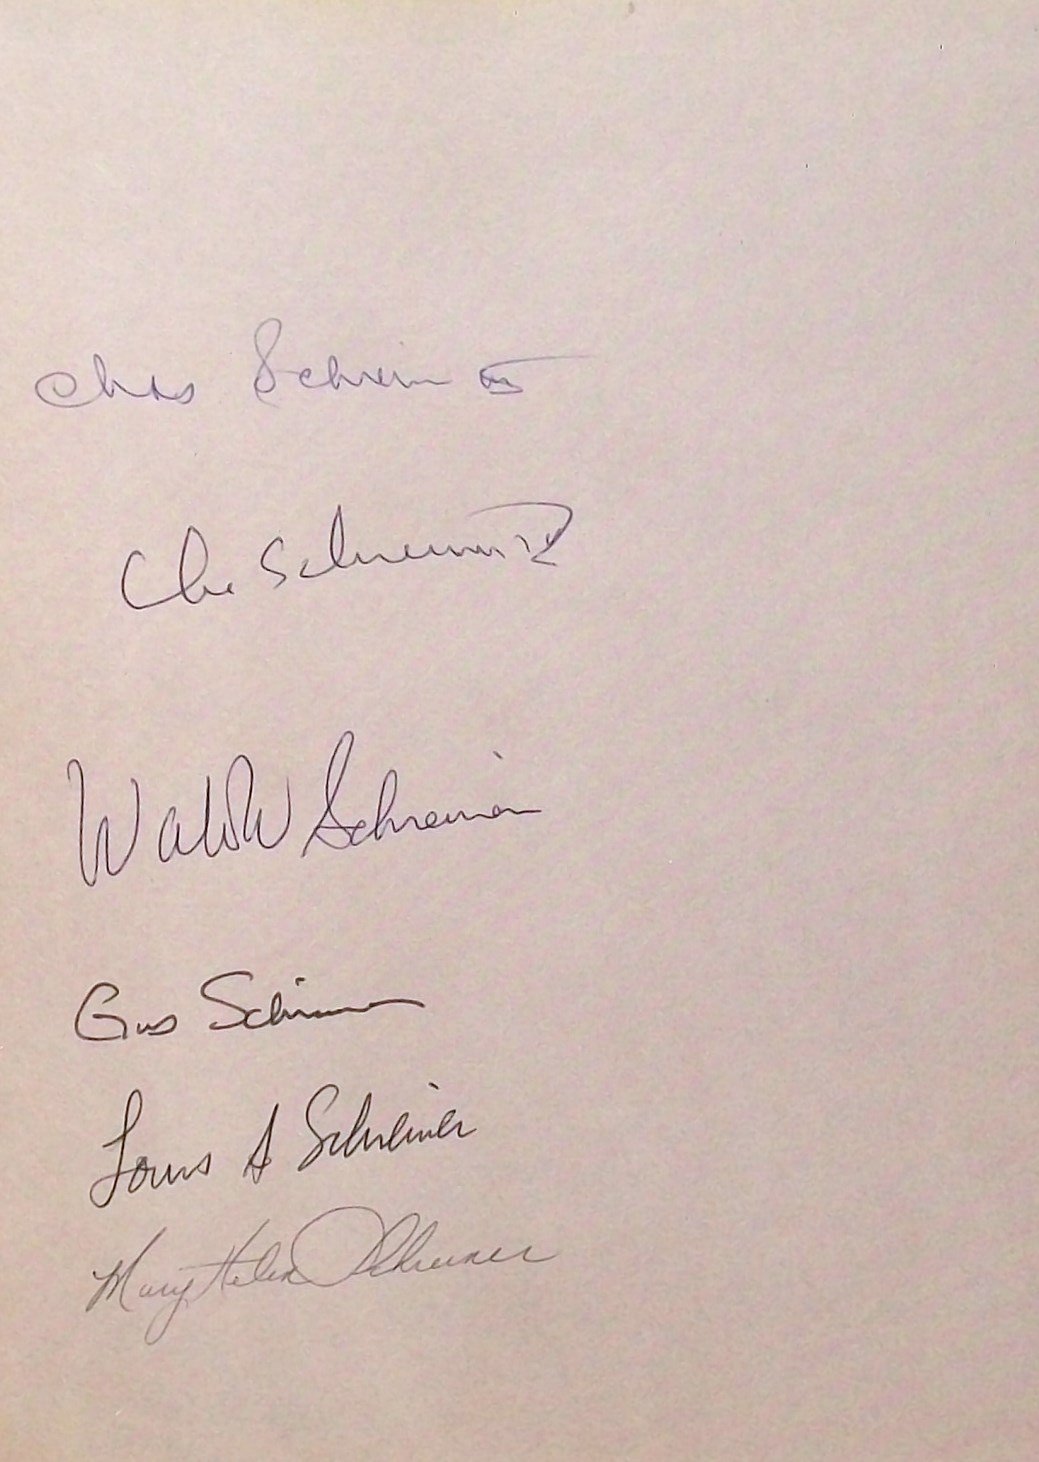 Chas Schreiner III
Chas Schreiner IV
Walter W Schreiner
Gus Schreiner
Louis A Schreiner
Mary Helen Schreiner